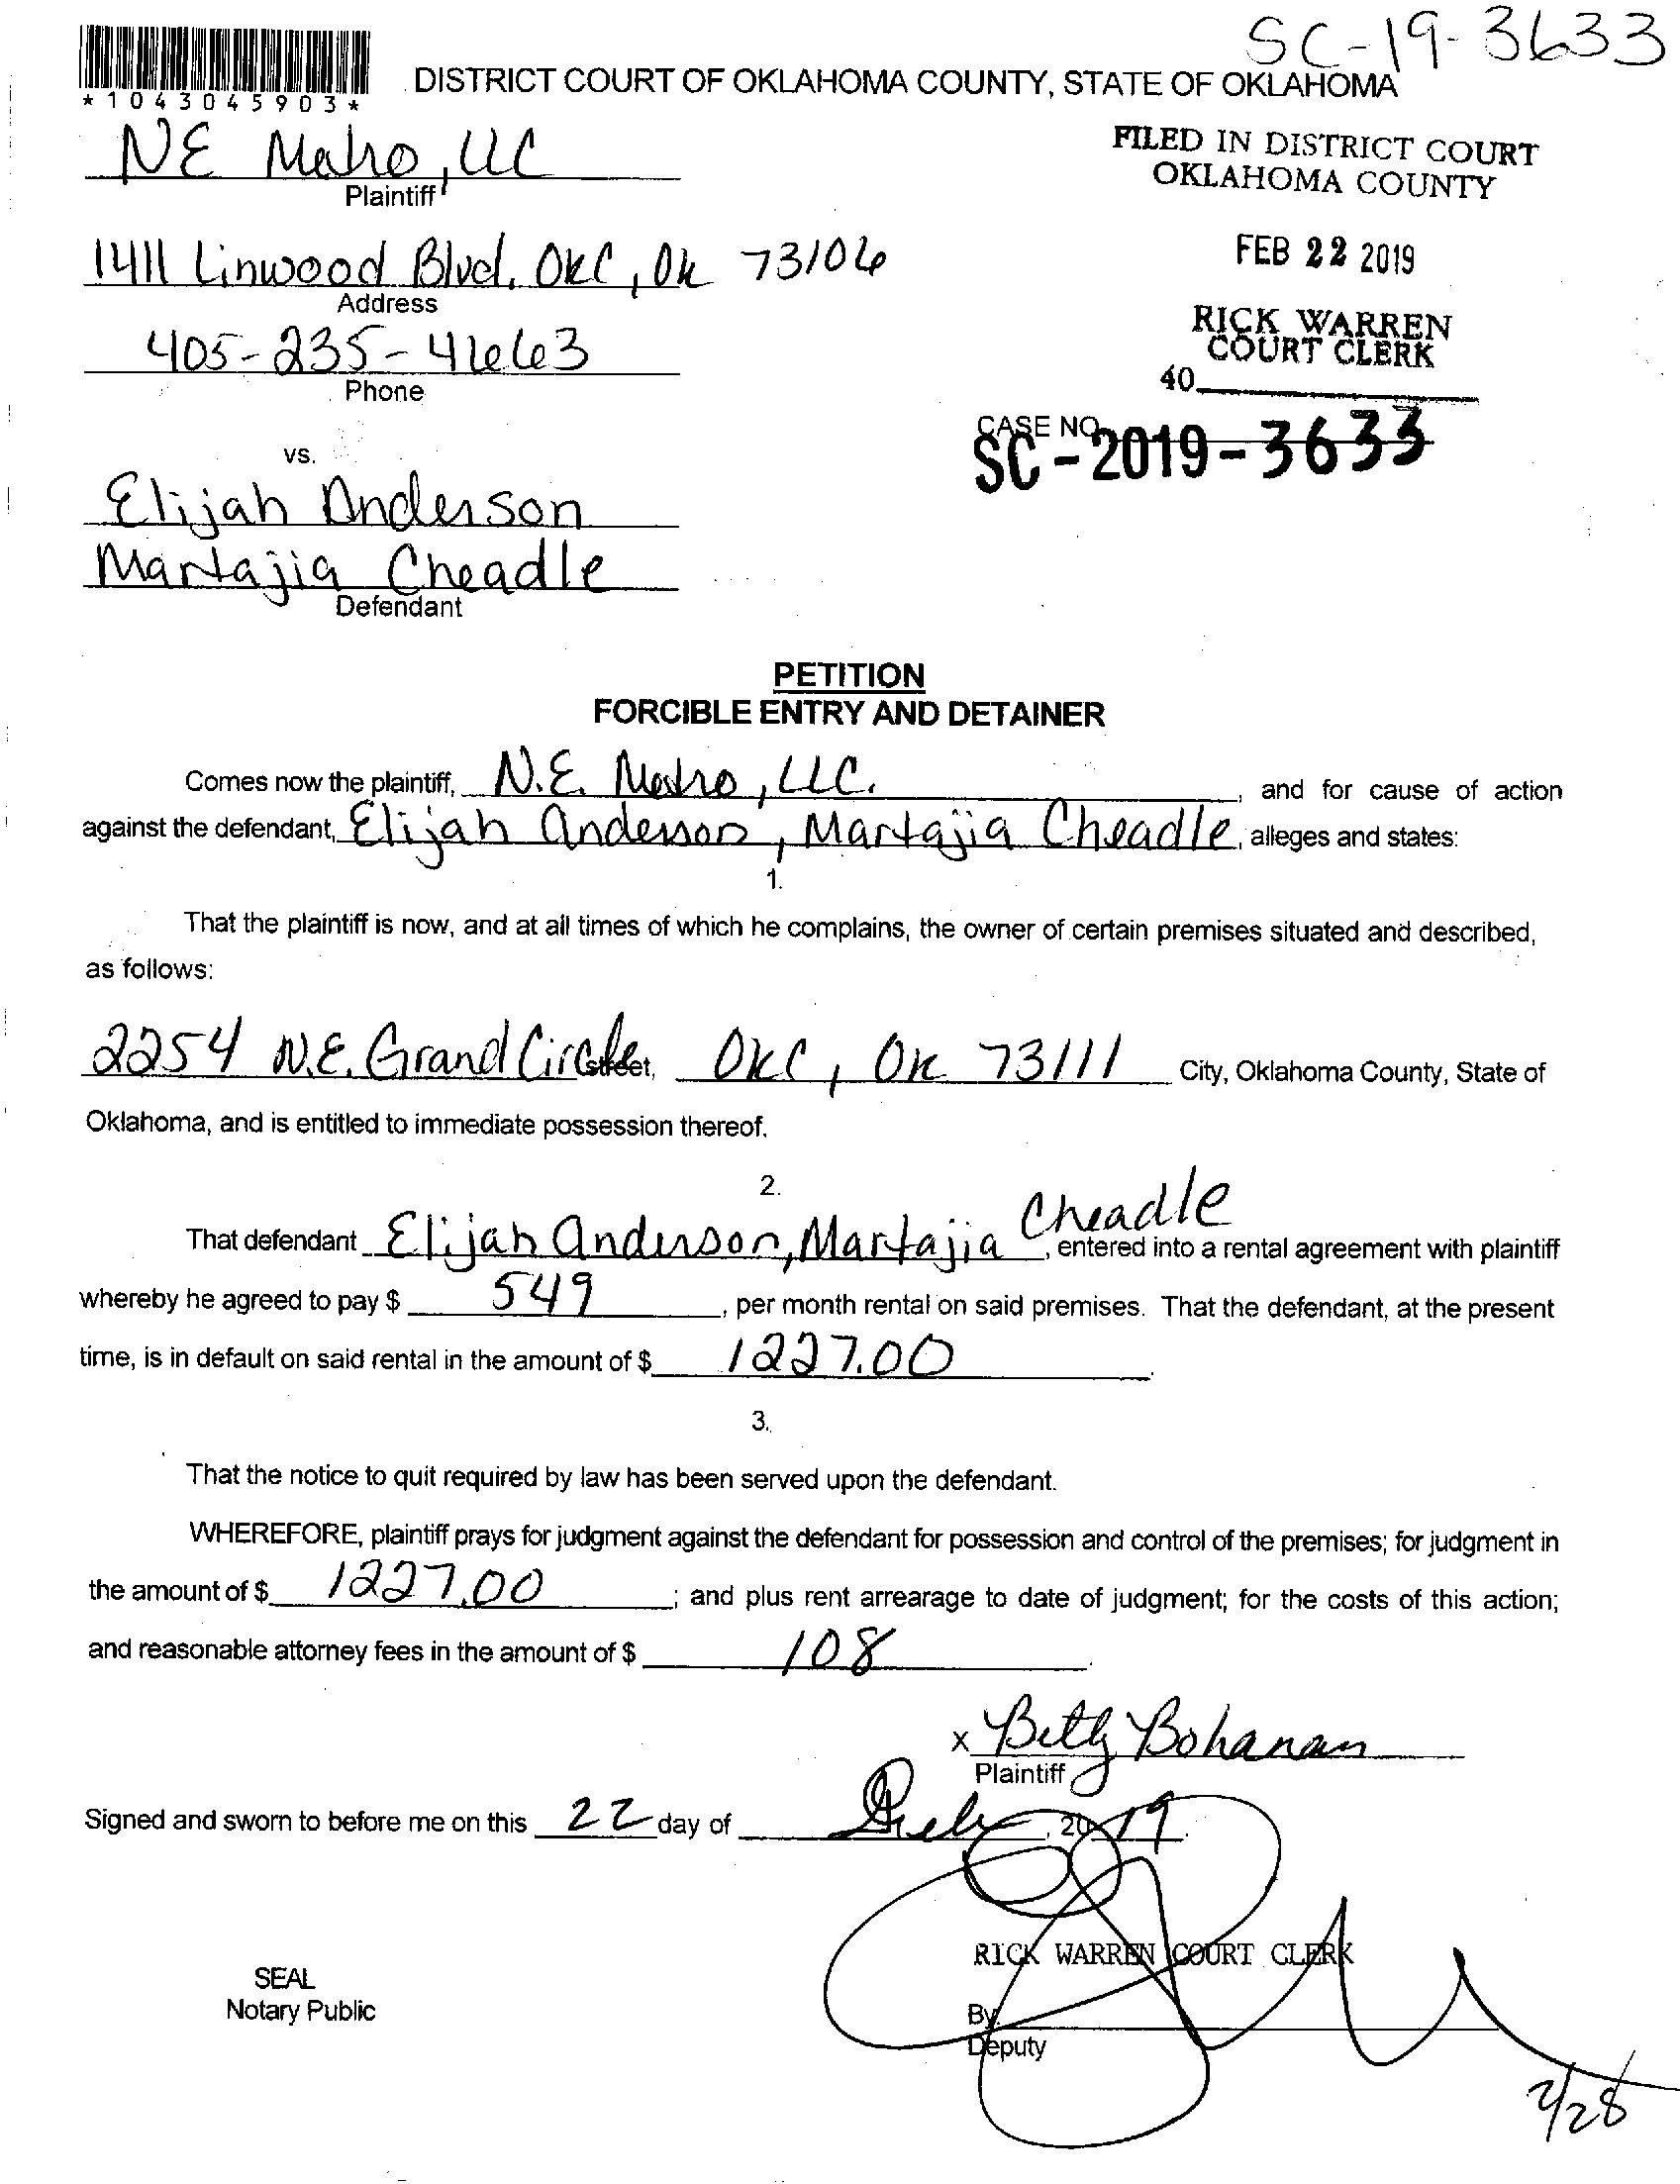 SC-19-3633
*1043045903*
DISTRICT COURT OF OKLAHOMA COUNTY, STATE OF OKLAHOMA
NE Metro, LLC
Plaintiff
FILED IN DISTRICT COURT
OKLAHOMA COUNTY
1411 Linwood Blvd, OKC, OK 73106
Address
FEB 22 2019
405-235-4663
Phone
RICK WARREN
COURT CLERK
40
CASE NO.
SC-2019-3633
vs.
Elijah Anderson
Martajia Cheadle
Defendant
PETITION
FORCIBLE ENTRY AND DETAINER
Comes now the plaintiff, N.E. Metro, LLC. , and for cause of action
against the defendant, Elijah Anderson, Martajia Cheadle, alleges and states:
1.
That the plaintiff is now, and at all times of which he complains, the owner of certain premises situated and described,
as follows:
2254 N.E. Grand Circle street, OKC, OK 73111 City, Oklahoma County, State of
Oklahoma, and is entitled to immediate possession thereof.
2.
That defendant Elijah Anderson, Martajia Cheadle, entered into a rental agreement with plaintiff
whereby he agreed to pay $ 549, per month rental on said premises. That the defendant, at the present
time, is in default on said rental in the amount of $ 1227.00.
3.
That the notice to quit required by law has been served upon the defendant.
WHEREFORE, plaintiff prays for judgment against the defendant for possession and control of the premises; for judgment in
the amount of $ 1227.00; and plus rent arrearage to date of judgment; for the costs of this action;
and reasonable attorney fees in the amount of $ 108.
x Betty Bohanan
Plaintiff
Signed and sworn to before me on this 22 day of Feb, 2019.
RICK WARREN COURT CLERK
SEAL
Notary Public
By
Deputy
2/28